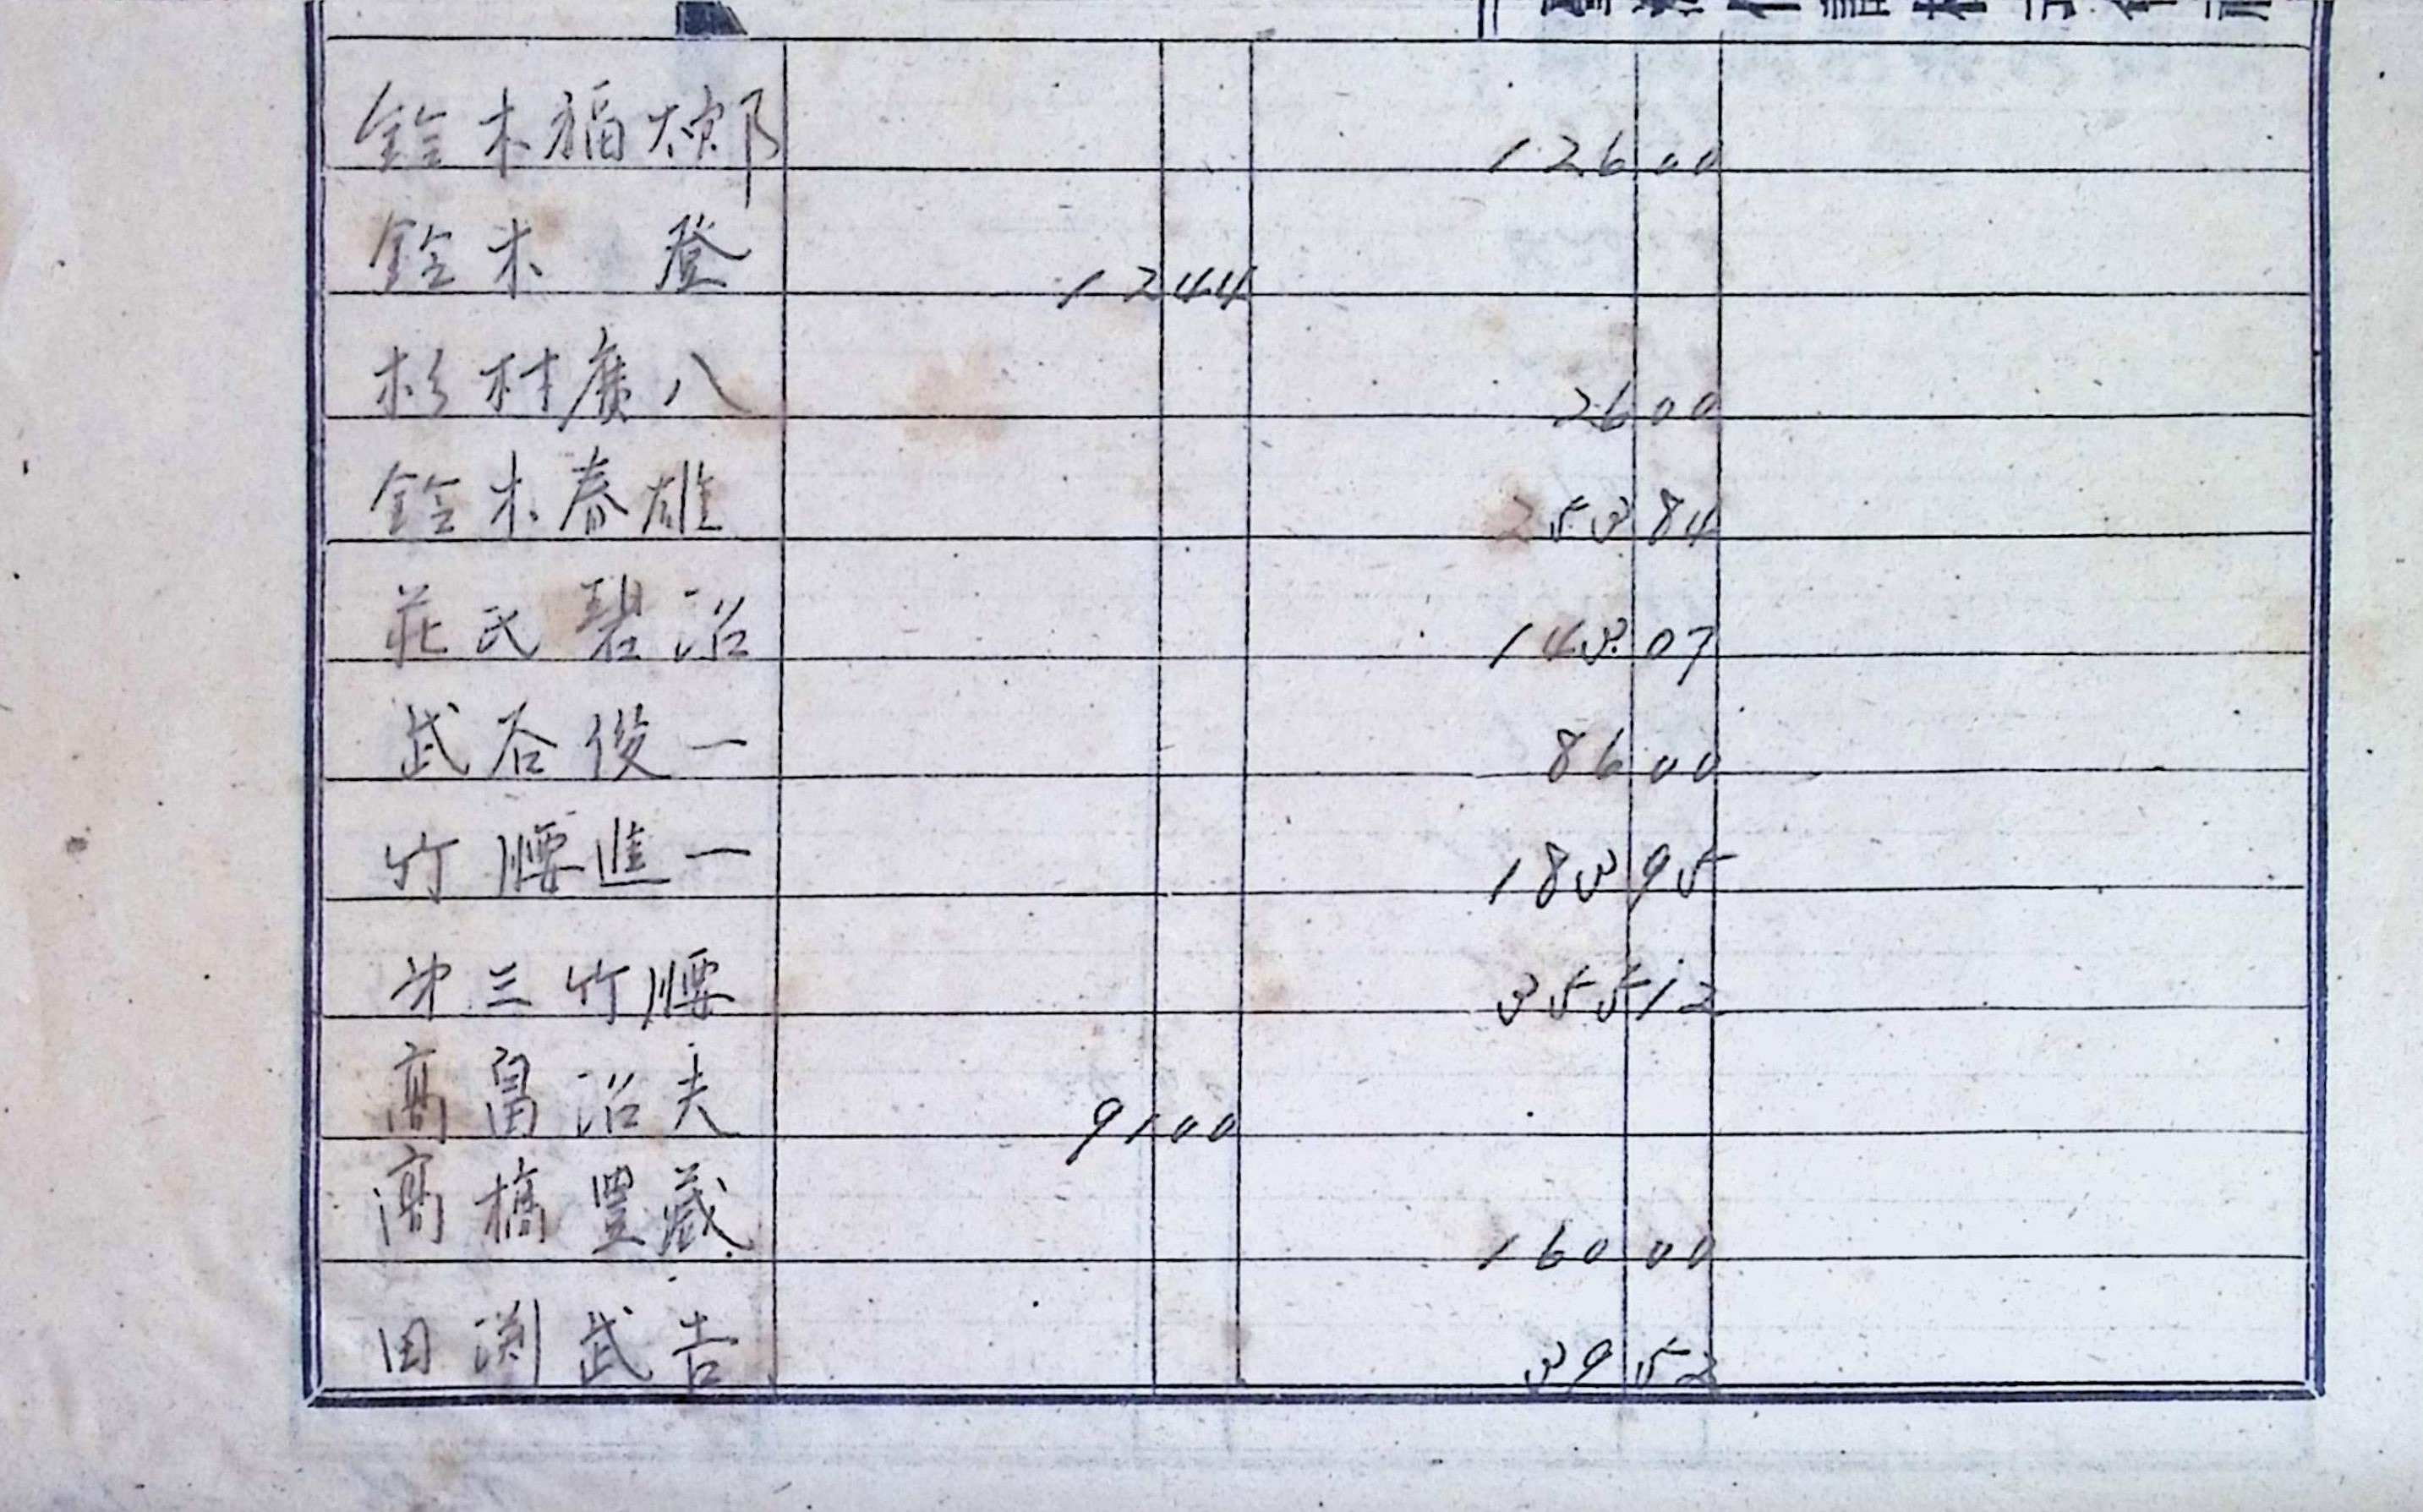 鈴木福太郎 126 00
鈴木 登 12 44
杉村廣八 26 00
鈴木春雄 253 84
莊氏碧治 143 07
武谷俊一 86 00
竹腰進一 183 95
才三竹腰 355 12
高畠治夫 91 00
高橋豊蔵 160 00
田渕武吉 39 52